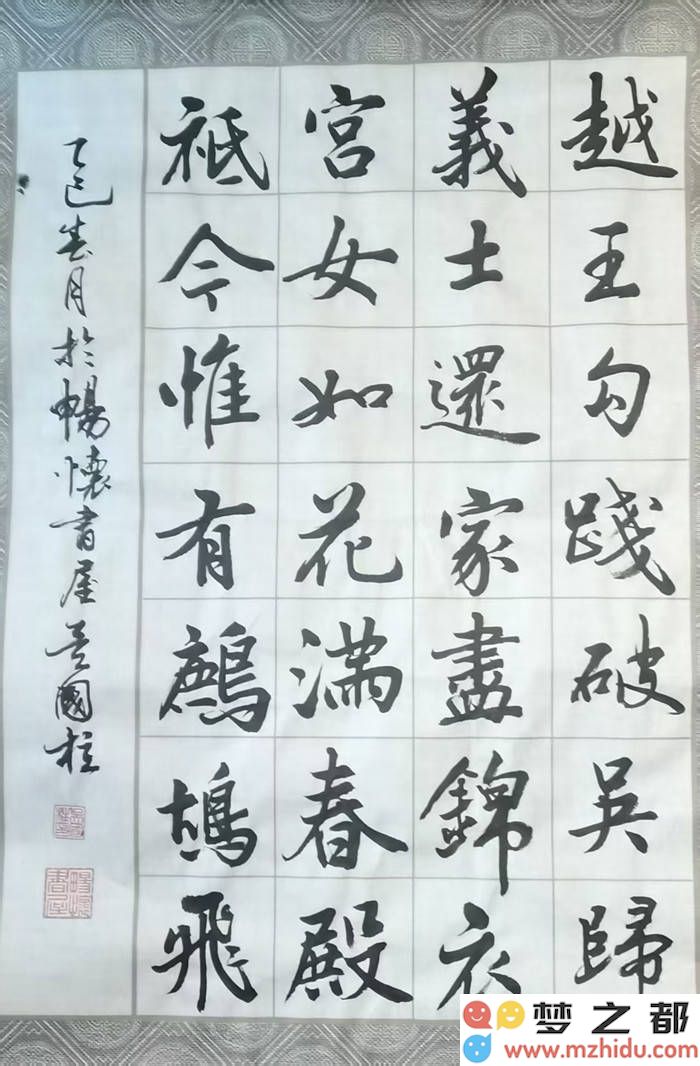 越王勾踐破吳歸
義士還家盡錦衣
宮女如花滿春殿
祇今惟有鷓鴣飛
乙巳春月於暢懷書屋吳國柱
梦之都
www.mzhidu.com